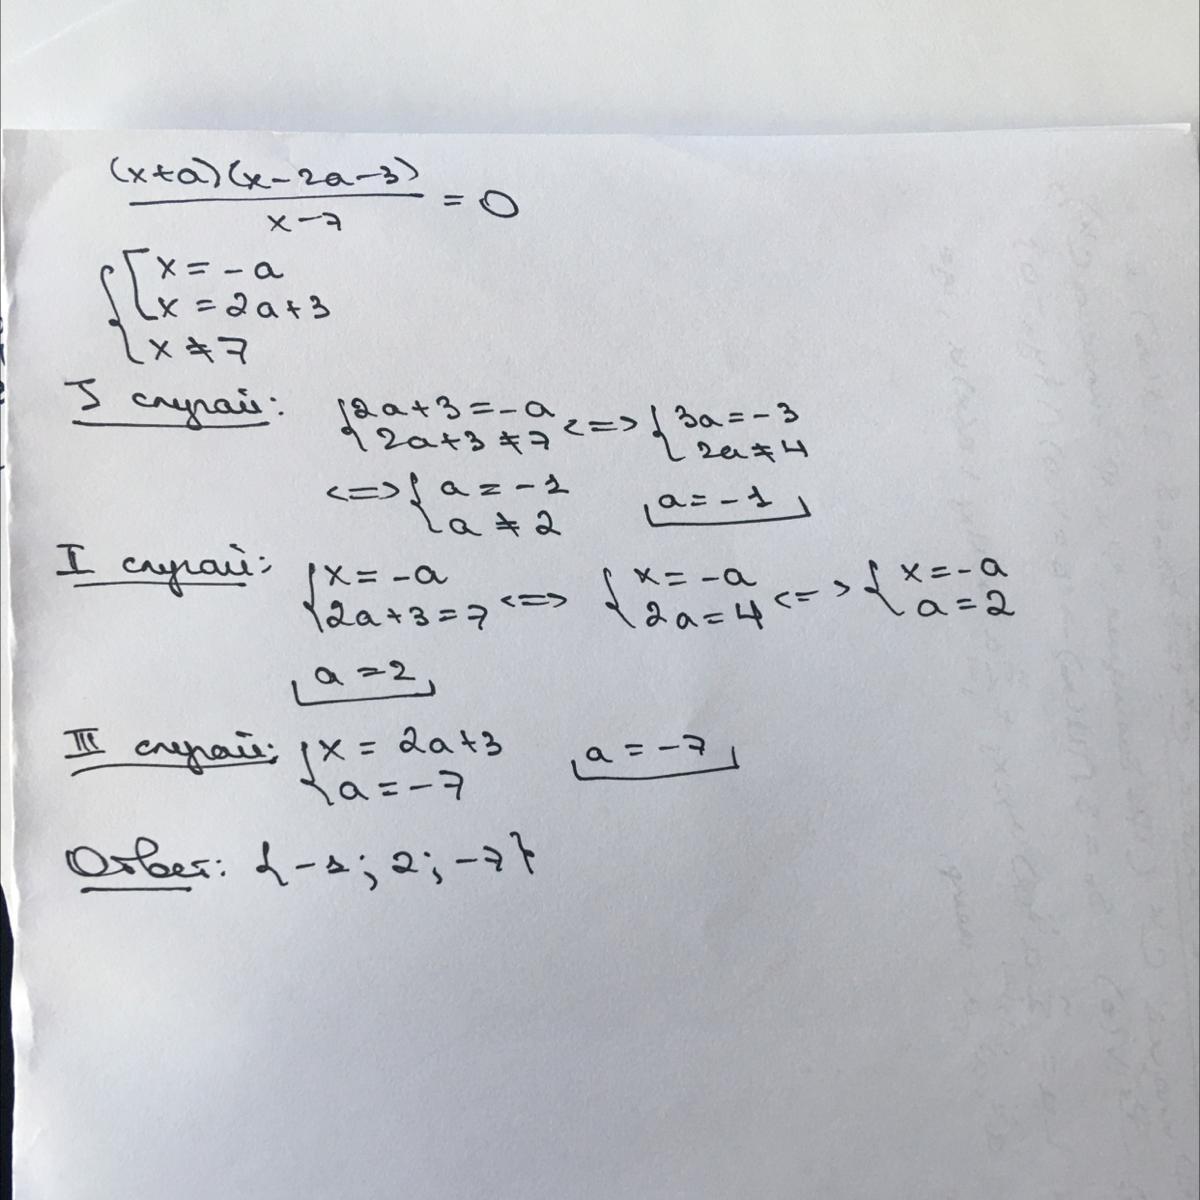 (x+a)(x-2a-3)
x-7 = 0
x = -a
x = 2a+3
x ≠ 7
I случай: { 2a+3 = -a <=> { 3a = -3
2a+3 ≠ 7 2a ≠ 4
<=> { a = -1 a = -1
a ≠ 2
I случай: { x = -a <=> { x = -a <=> { x = -a
2a+3 = 7 2a = 4 a = 2
a = 2
III случай: { x = 2a+3 a = -7
a = -7
Ответ: {-1; 2; -7}